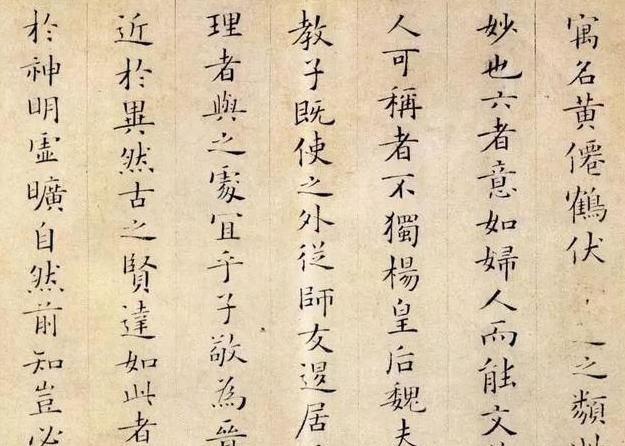 寓名黃僊鶴伏之類
妙也六者意如婦人而能文
人可稱者不獨楊皇后魏夫
教子既使之外從師友退居
理者與之處宜乎子敬為晉
近於異然古之賢達如此者
於神明虛曠自然前知豈必